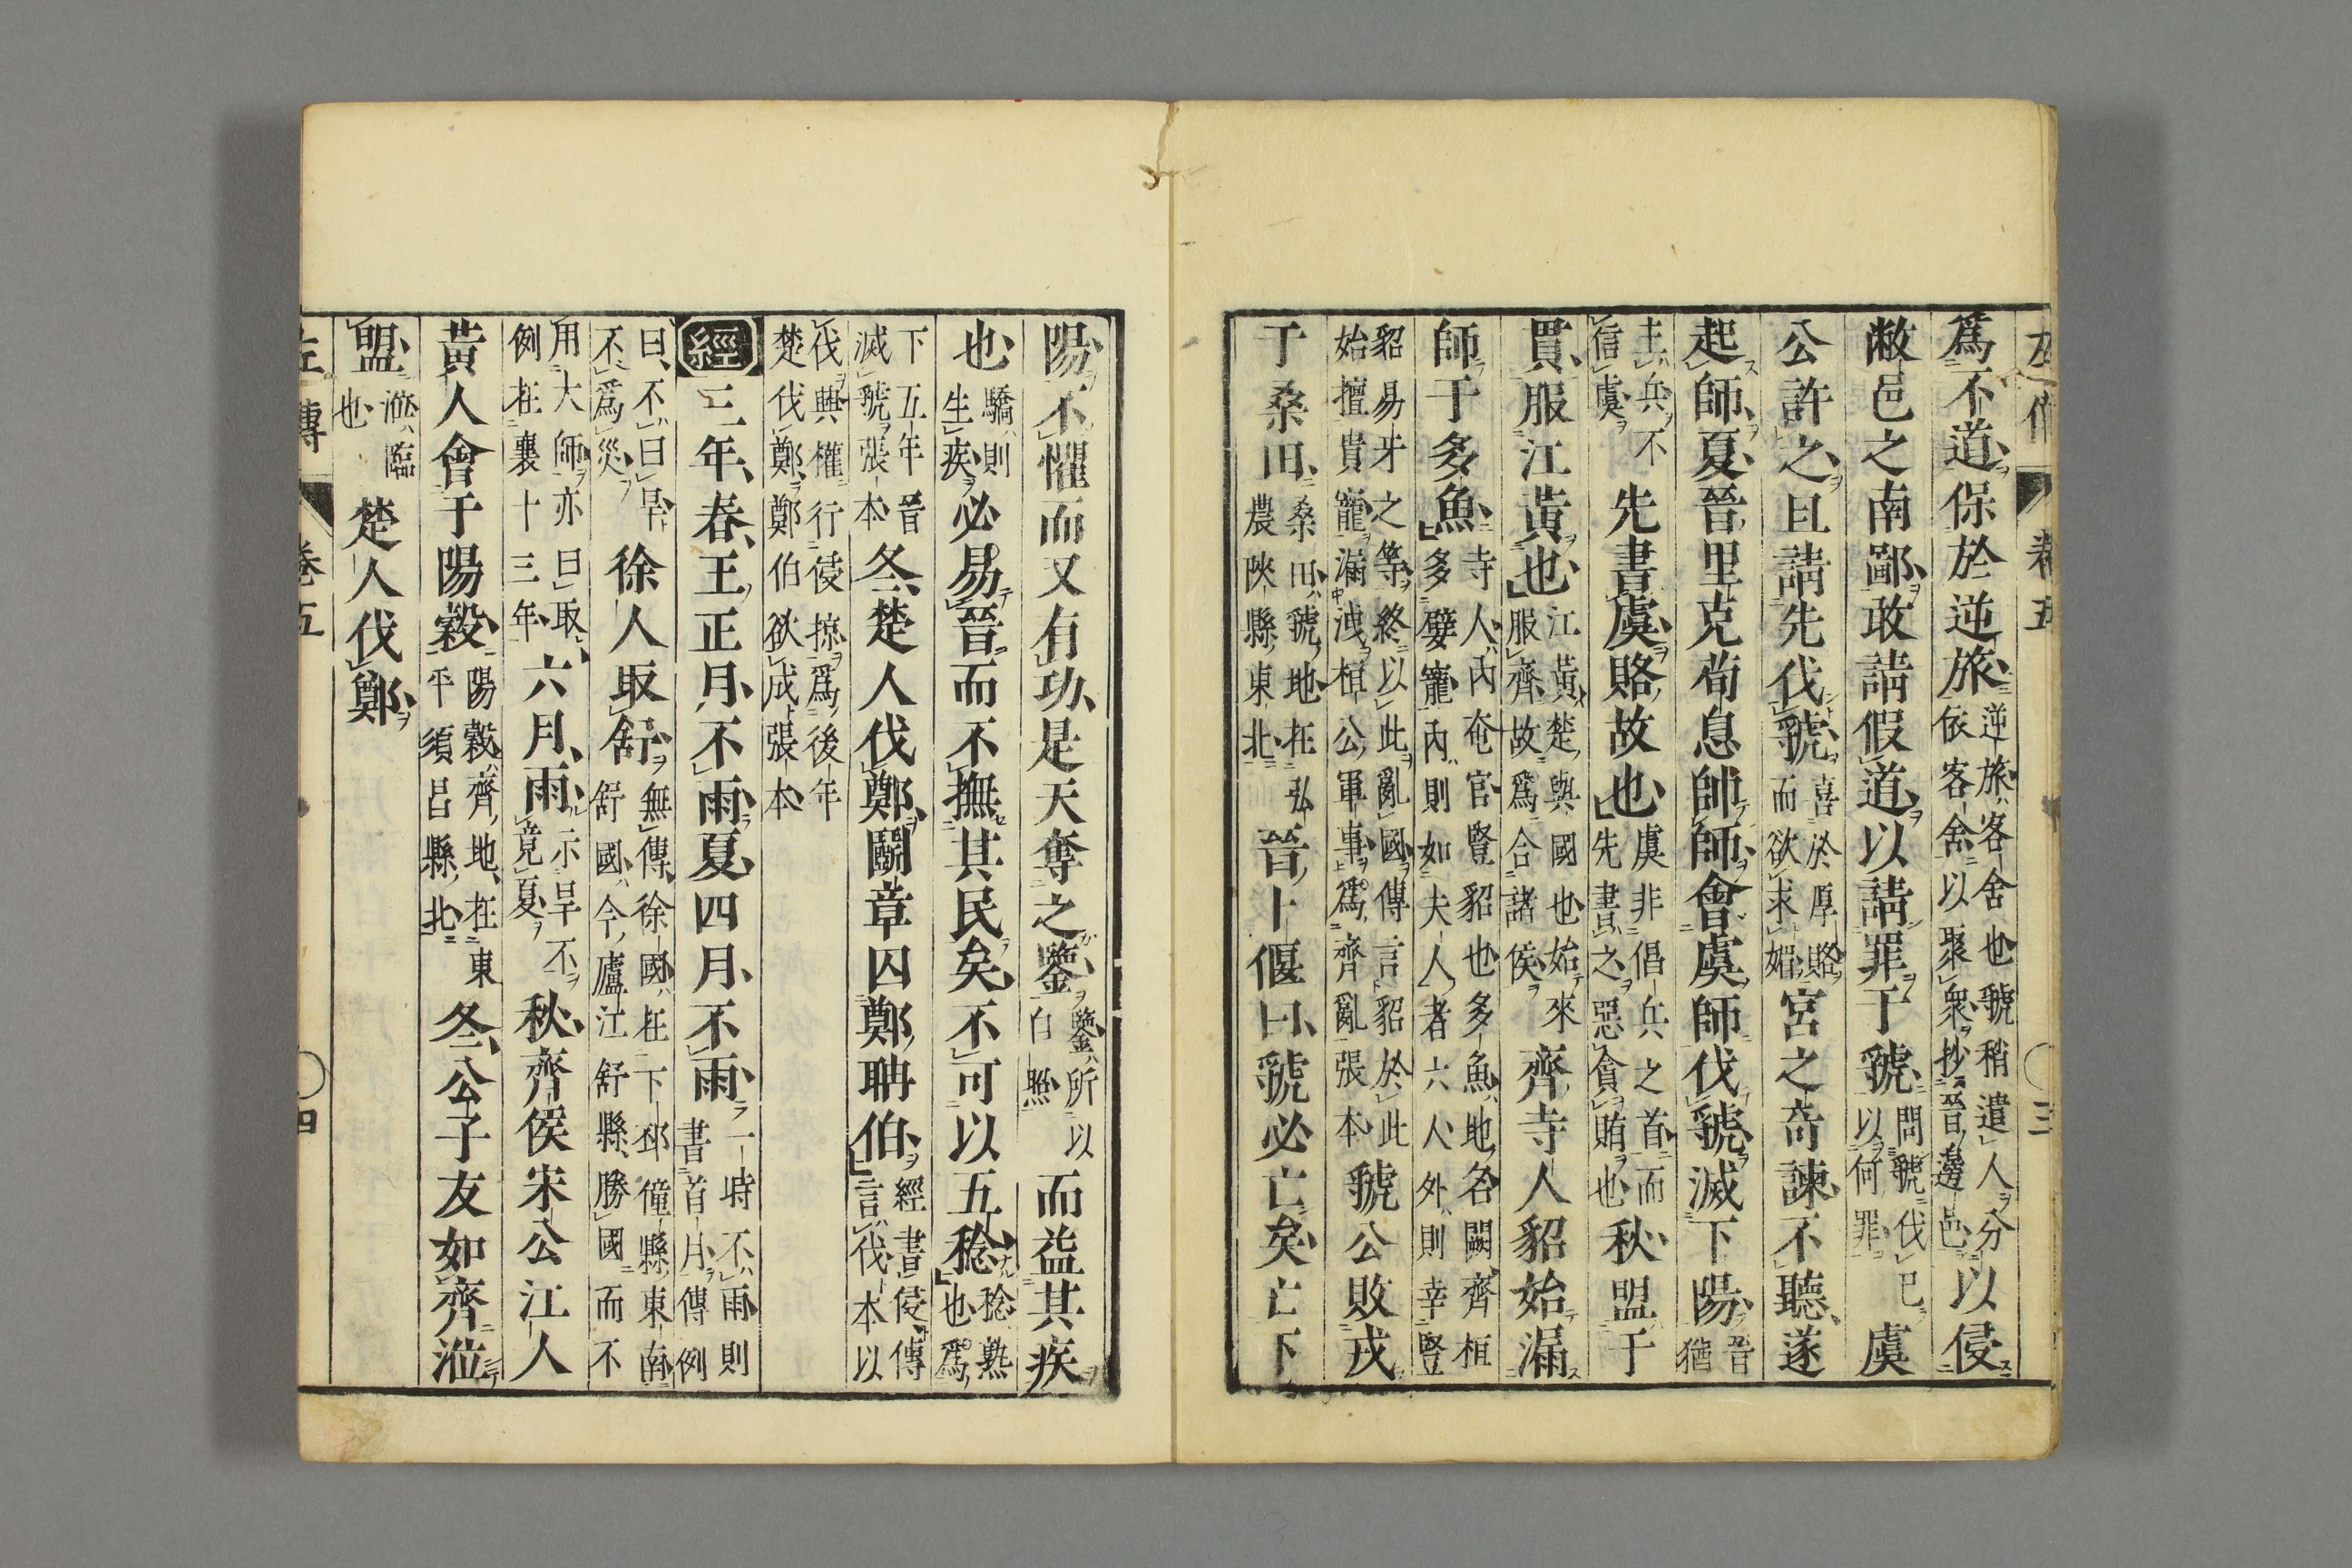 左傳 卷五 三
爲不道保於逆旅逆旅客舍也虢稍遣人分依客舍以聚衆抄晉邊邑以侵
敝邑之南鄙敢請假道以請罪于虢問虢伐己以何罪虞
公許之且請先伐虢喜於厚賂而欲求媚宮之奇諫不聽遂
起師夏晉里克荀息帥師會虞師伐虢滅下陽晉猶
主兵不信虞先書虞賂故也虞非倡兵之首而先書之惡貪賄也秋盟于
貫服江黃也江黃楚與國也始來服齊故爲合諸侯齊寺人貂始漏
師于多魚寺人內奄官豎貂也多魚地名闕齊桓多嬖寵內則如夫人者六人外則幸豎
貂易牙之等終以此亂國傳言貂於此始擅貴寵漏洩桓公軍事爲齊亂張本虢公敗戎
于桑田桑田虢地在弘農陝縣東北晉卜偃曰虢必亡矣亡下
陽不懼而又有功是天奪之鑒鑒所以自照而益其疾
也驕則生疾必易晉而不撫其民矣不可以五稔稔熟也爲
下五年晉滅虢張本冬楚人伐鄭鬭章囚鄭聃伯經書侵傳言伐本以
伐興權行侵掠爲後年楚伐鄭鄭伯欲成張本
經三年春王正月不雨夏四月不雨一時不雨則書首月傳例
曰不曰旱不爲災徐人取舒無傳徐國在下邳僮縣東南舒國今廬江舒縣勝國而不
用大師亦曰取例在襄十三年六月雨示旱不竟夏秋齊侯宋公江人
黃人會于陽穀陽穀齊地在東平須昌縣北冬公子友如齊涖
盟涖臨也楚人伐鄭
左傳 卷五 四